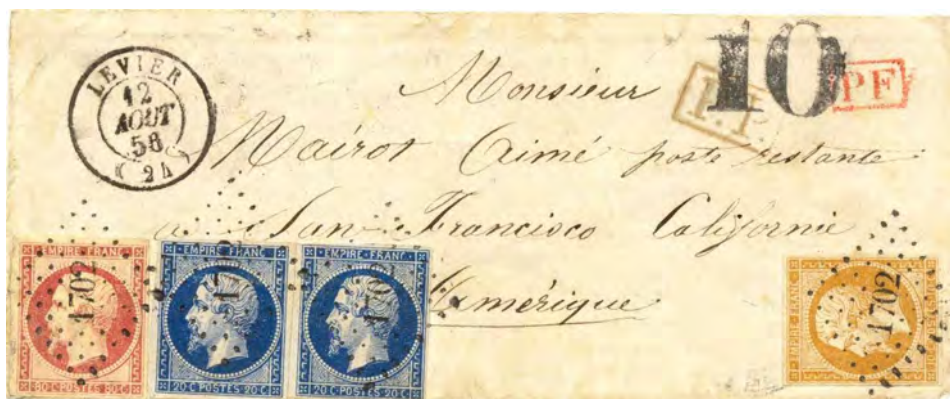 LEVIER
12
AOUT
58
(24)
10
PF
P.F.
Monsieur
Mairot Aimé poste restante
a San Francisco Californie
Amérique
EMPIRE FRANC
1702
80·C·POSTES·80·C
EMPIRE FRANC
17
20·C·POSTES·20·C
EMPIRE FRANC
1702
20·C·POSTES·20·C
EMPIRE FRANC
1702